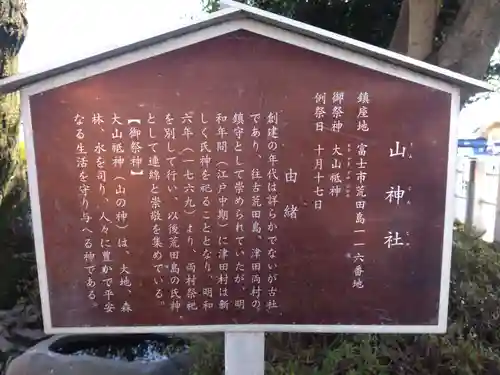 山神社
さんじんじゃ
鎮座地 富士市荒田島一一六番地
御祭神 大山祗神
例祭日 十月十七日
由緒
創建の年代は詳らかでないが古社
であり、往古荒田島、津田両村の
鎮守として崇められていたが、明
和年間（江戸中期）に津田村は新
しく氏神を祀ることとなり、明和
六年（一七六九）より、両村祭祀
を別して行い、以後荒田島の氏神
として連綿と崇敬を集めている。
【御祭神】
大山祗神（山の神）は、大地、森
林、水を司り、人々に豊かで平安
なる生活を守り与へる神である。